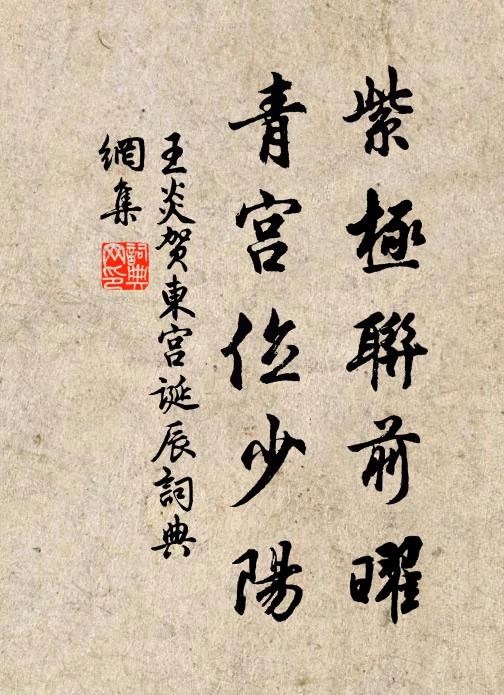 紫極聯前曜
青宮位少陽
王炎賀東宮誕辰詞典
網集
詞典網印